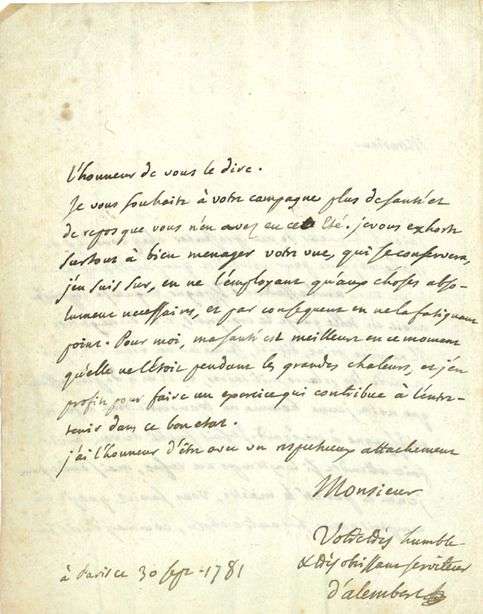 l'honneur de vous le dire.
Je vous souhaite à votre campagne plus de santé et
de repos que vous n'en avez eu cet Eté. je vous exhorte
surtout à bien menager votre vue, qui se conservera,
j'en suis sur, en ne l'employant qu'aux choses abso-
lument necessaires, et par consequent en ne la fatiguant
point. Pour moi, ma santé est meilleure en ce moment
qu'elle ne l'étoit pendant les grandes chaleurs, et j'en
profite pour faire un exercice qui contribue à l'entre-
tenir dans ce bon etat.
j'ai l'honneur d'être avec un respectueux attachement
Monsieur
Votre très humble
& très obeissant serviteur
à Paris ce 30 sept. 1781
d'alembert